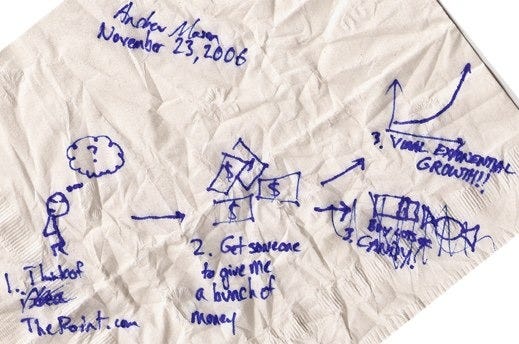 Andrew Mason
November 23, 2006
?
$
$
$
$
1. Think of
idea
ThePoint.com
2. Get someone
to give me
a bunch of
money
3. VIRAL EXPONENTIAL
GROWTH!!
BUY LOTS OF
3. CANDY!